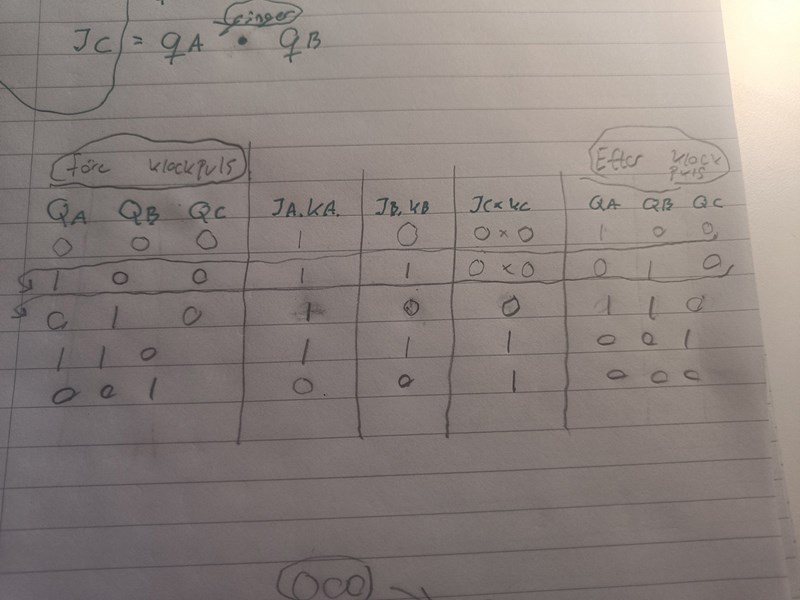 gånger
JC = qA • qB
före klockpuls
Efter klock puls
QA QB QC JA.KA. JB.KB JC×KC QA QB QC
0 0 0 1 0 0×0 1 0 0,
1 0 0 1 1 0×0 0 1 0,
0 1 0 1 0 0 1 1 0
1 1 0 1 1 1 0 0 1
0 0 1 0. 0 1 0 0 0
000